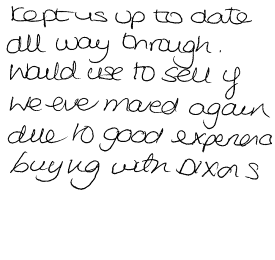 kept us up to date
all way through.
would use to sell if
we ever moved again
due to good experienc
buying with DIXONS